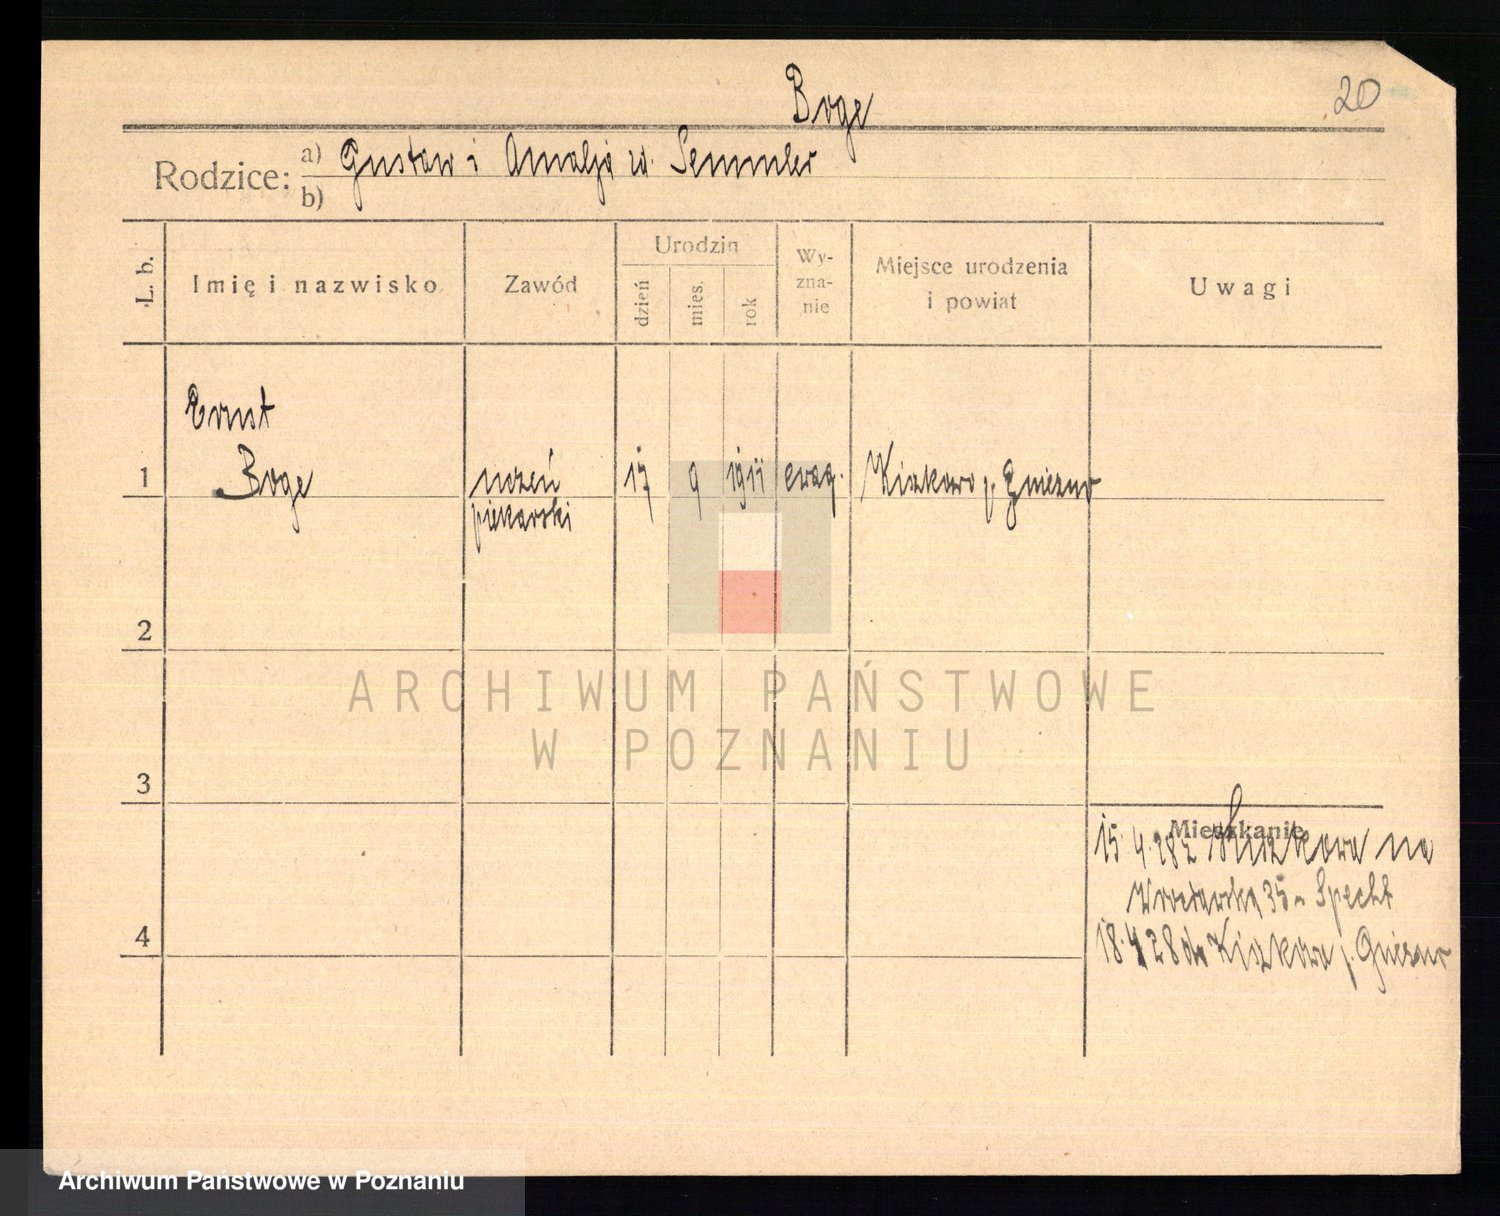 Boge
20
Rodzice:
a) Gustaw i Amalja w. Semmler
b)
L. b.
Imię i nazwisko
Zawód
Urodzin
dzień
mies.
rok
Wy-
zna-
nie
Miejsce urodzenia
i powiat
Uwagi
Ernst
1
Boge
uczeń
17
9
1911
ewag.
Kiszkowo p. Gniezno
piekarski
2
ARCHIWUM PAŃSTWOWE
W POZNANIU
3
Mieszkanie
15.4.28 z Kiszkowa na
Wrocławska 35 u Specht
4
18.4 28 do Kiszkowa p. Gniezno
Archiwum Państwowe w Poznaniu